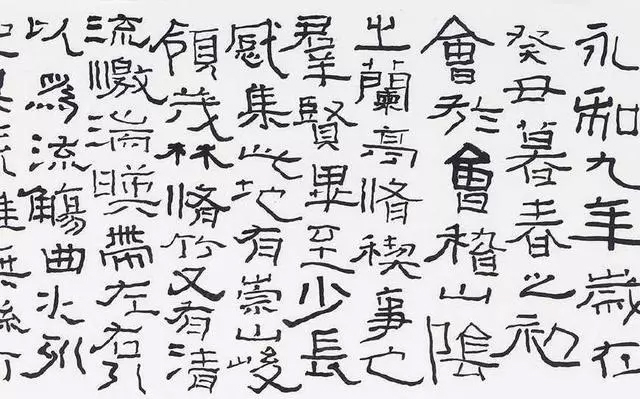 永和九年歲在
癸丑暮春之初
會於會稽山陰
之蘭亭脩禊事也
羣賢畢至少長
咸集此地有崇山峻
領茂林脩竹又有清
流激湍暎帶左右引
以爲流觴曲水列